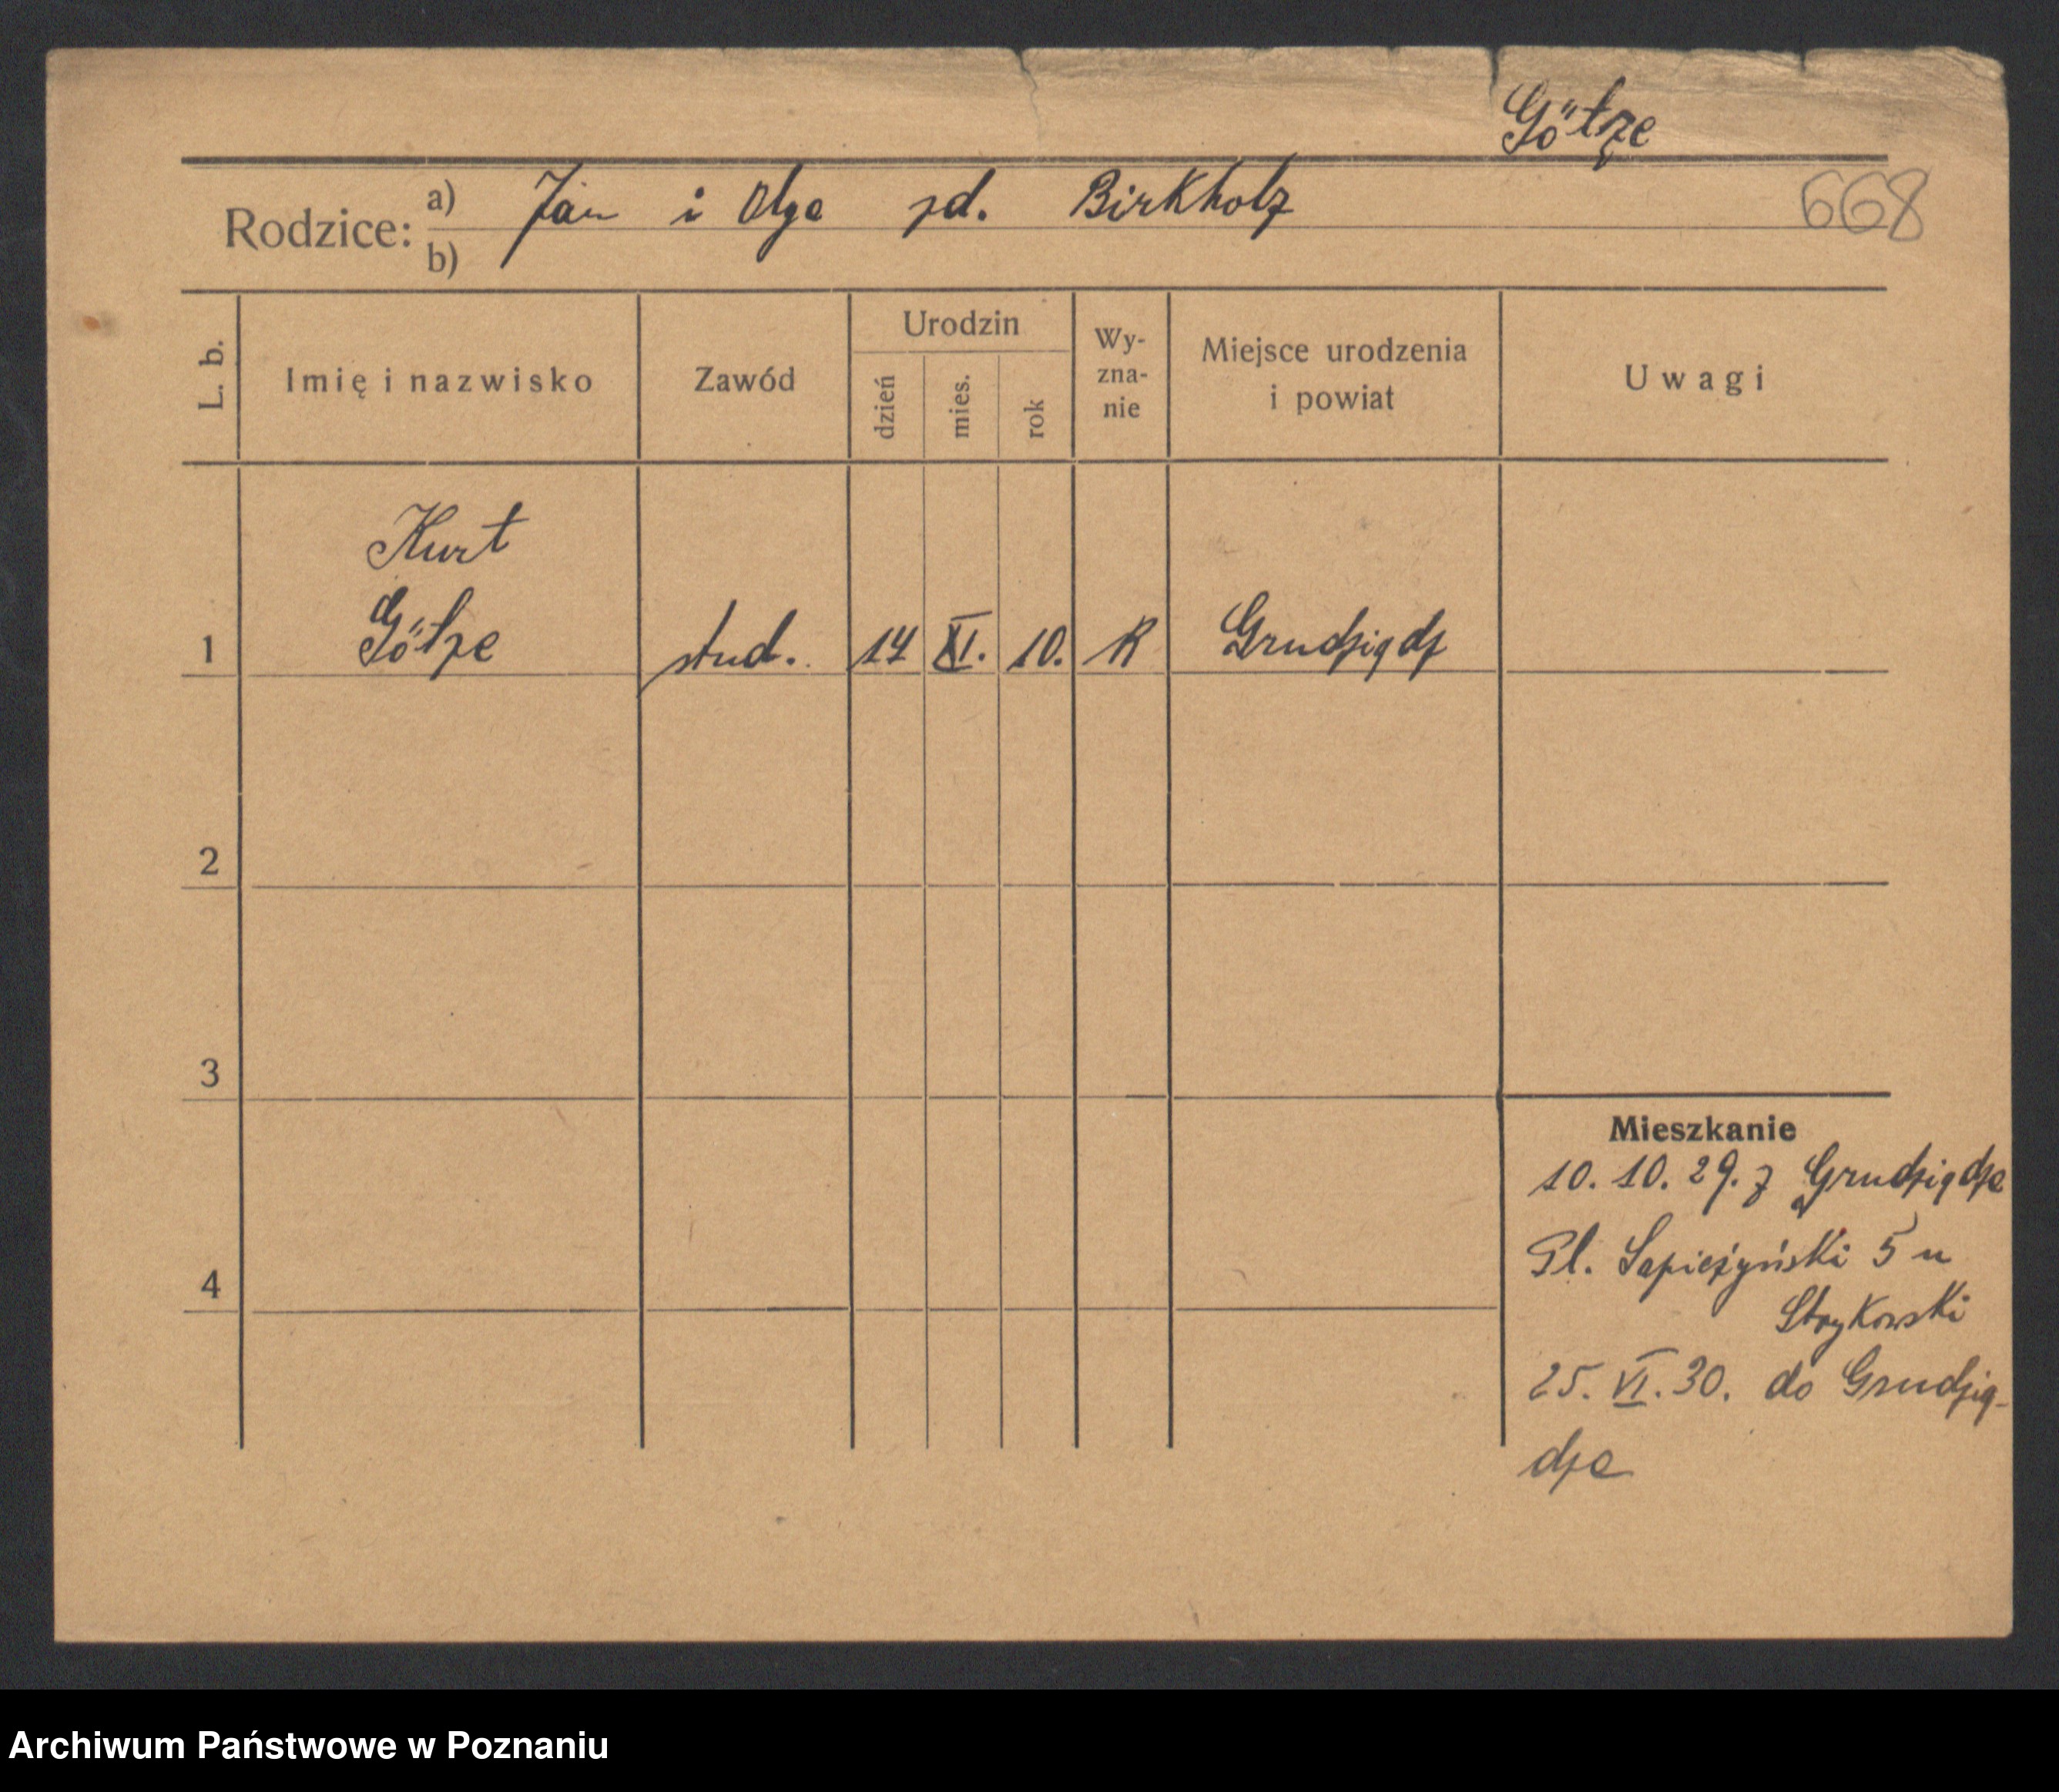 Götze
668
Rodzice: a) Jan i Olga zd. Birkholz
b)
L. b. Imię i nazwisko Zawód Urodzin dzień mies. rok Wy-zna-nie Miejsce urodzenia i powiat Uwagi
Kurt
1 Götze stud. 14 XI. 10. K Grudziądz
2
3
4
Mieszkanie
10. 10. 29. z Grudziądza
Pl. Sapieżyński 5 u
Strykowski
25. VI. 30. do Grudzią-
dza
Archiwum Państwowe w Poznaniu